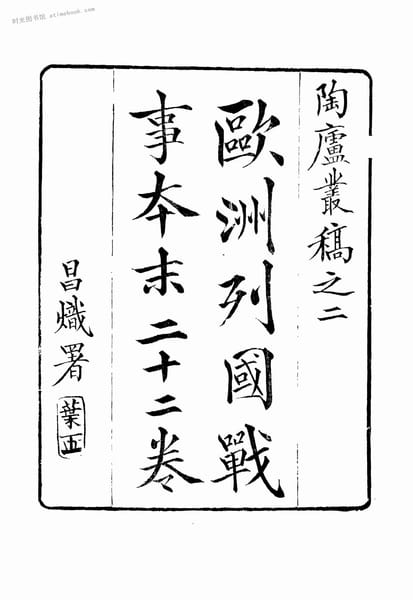 时光图书馆 atimebook.com
陶廬叢稿之二
歐洲列國戰
事本末二十二卷
昌熾署
葉五